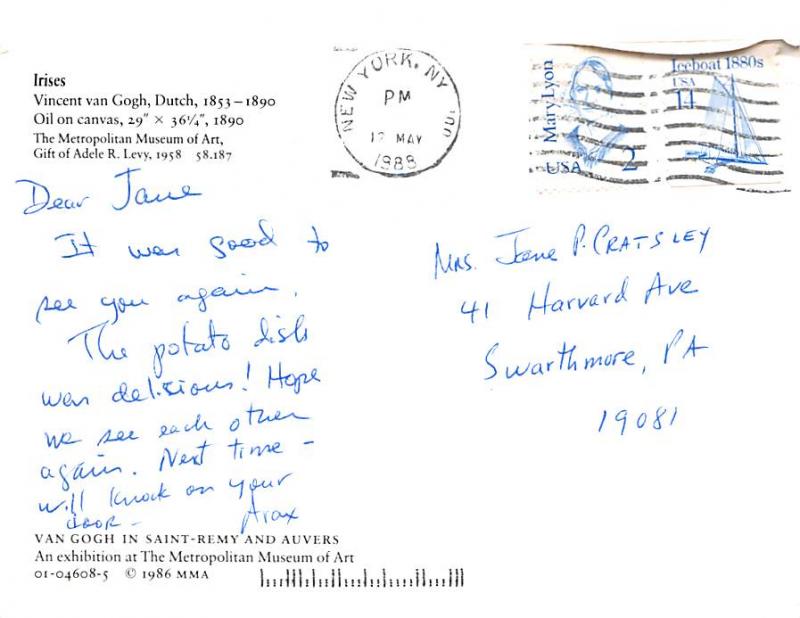 Irises
Vincent van Gogh, Dutch, 1853–1890
Oil on canvas, 29" × 36¼", 1890
The Metropolitan Museum of Art,
Gift of Adele R. Levy, 1958 58.187
NEW YORK, NY
PM
MAY
1988
Mary Lyon
USA 2
Iceboat 1880s
USA
14
Dear Jane
It was good to
see you again.
The potato dish
was delisious! Hope
we see each other
again. Next time –
will knock on your
door –
Arax
Mrs. Jane P. CRATSLEY
41 Harvard Ave
Swarthmore, PA
19081
VAN GOGH IN SAINT-REMY AND AUVERS
An exhibition at The Metropolitan Museum of Art
01-04608-5 © 1986 MMA